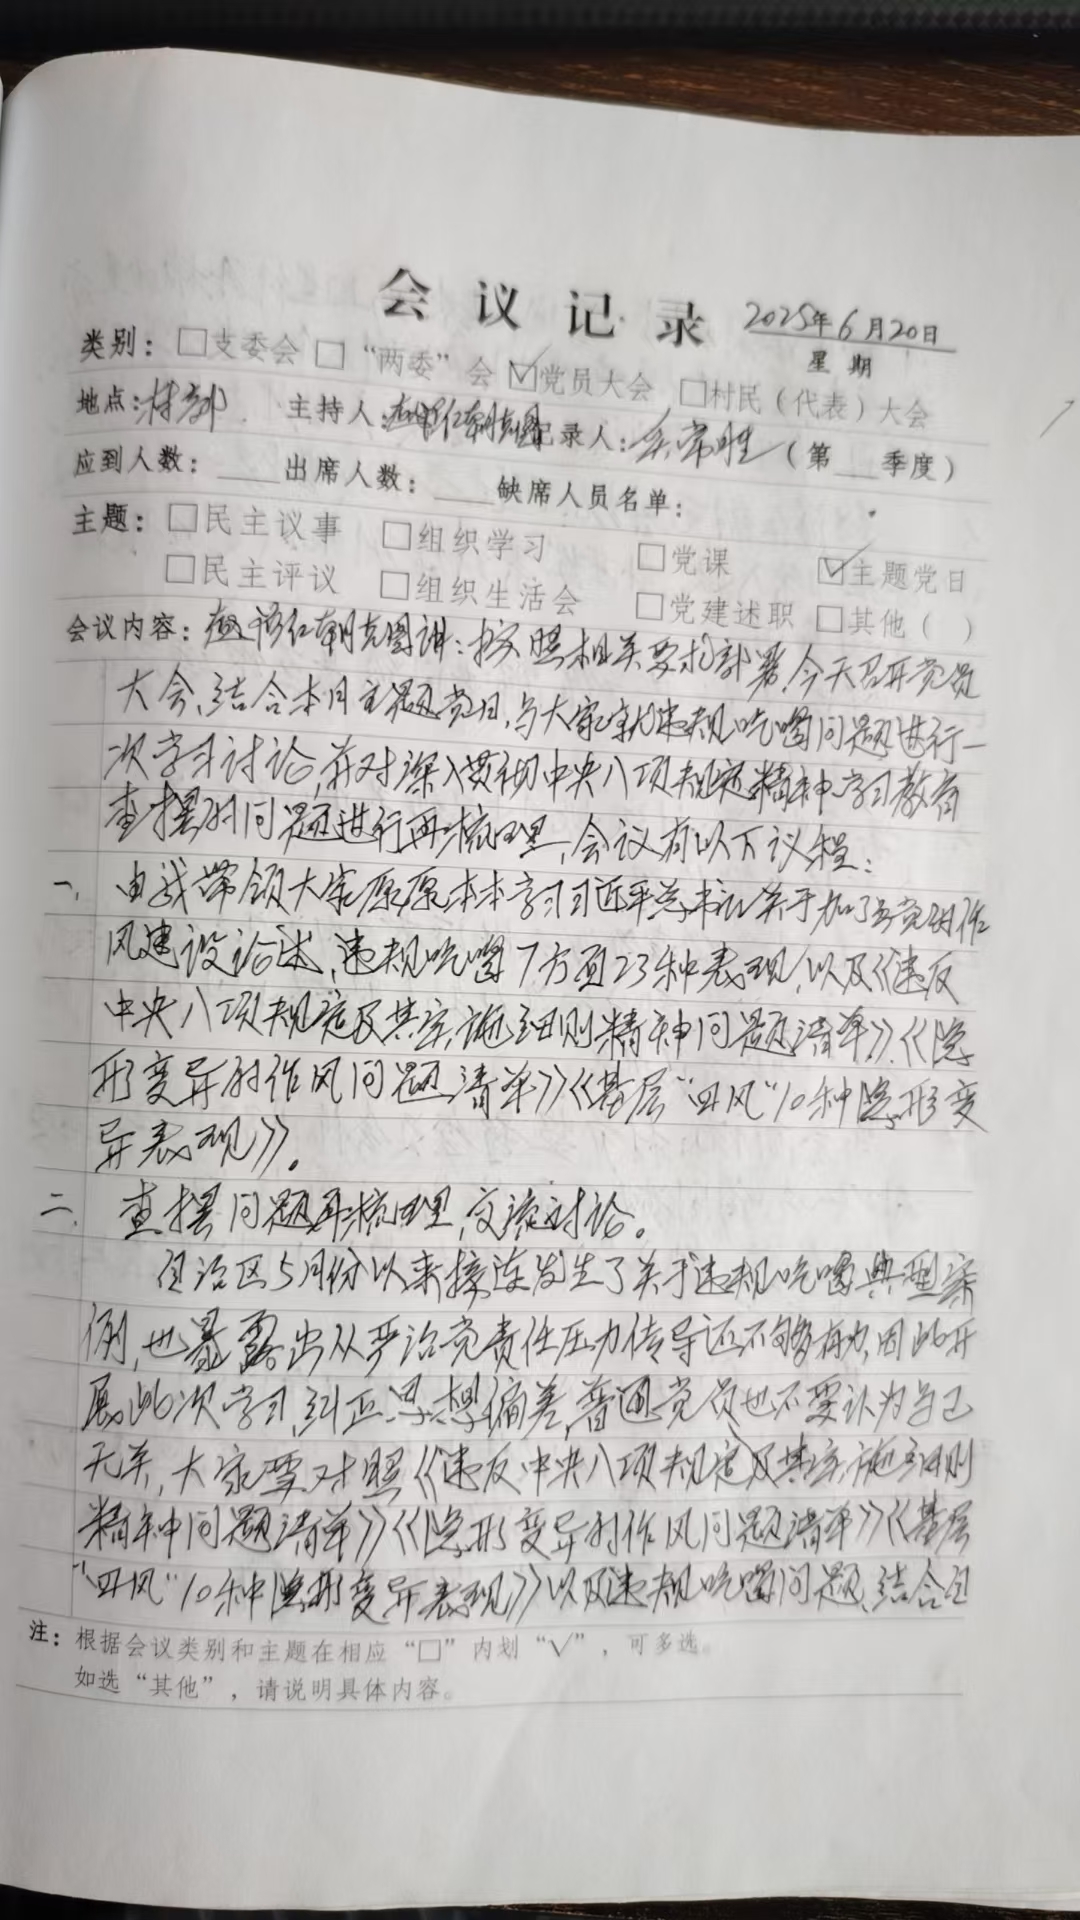 会议记录 2025年6月20日
星期
类别：□支委会 □“两委”会 ☑党员大会 □村民（代表）大会
地点：村部 主持人：朝克图 记录人：常胜（第__季度）
应到人数：____出席人数：____缺席人员名单：
主题：□民主议事 □组织学习 □党课 ☑主题党日
□民主评议 □组织生活会 □党建述职 □其他（ ）
会议内容：朝克图讲：按照相关要求部署，今天召开党员
大会，结合本月主题党日，与大家就违规吃喝问题进行一
次学习讨论，并对深入贯彻中央八项规定精神学习教育
查摆的问题进行再梳理，会议有以下议程：
一、由我带领大家原原本本学习习近平总书记关于加强党的作
风建设论述，违规吃喝7方面23种表现，以及《违反
中央八项规定及其实施细则精神问题清单》《隐
形变异的作风问题清单》《基层“四风”10种隐形变
异表现》。
二、查摆问题再梳理，交流讨论。
自治区5月份以来接连发生了关于违规吃喝典型案
例，也暴露出从严治党责任压力传导还不够有力，因此开
展此次学习，纠正思想偏差，普通党员也不要认为与己
无关，大家要对照《违反中央八项规定及其实施细则
精神问题清单》《隐形变异的作风问题清单》《基层
“四风”10种隐形变异表现》以及违规吃喝问题，结合自
注：根据会议类别和主题在相应“□”内划“√”，可多选。
如选“其他”，请说明具体内容。